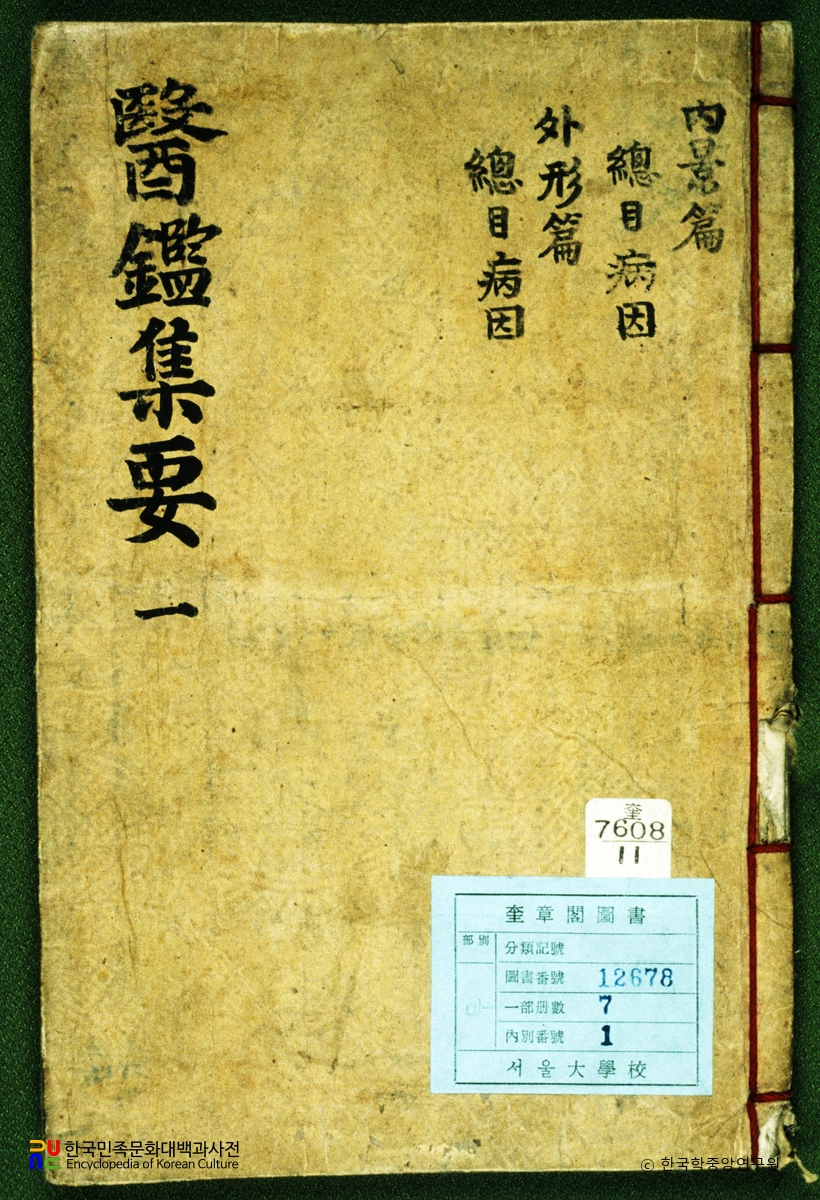 內景篇
總目病因
外形篇
總目病因
醫鑑集要 一
奎
7608
11
奎章閣圖書
部別
分類記號
圖書番號 12678
一部冊數 7
內別番號 1
서울大學校
한국민족문화대백과사전
Encyclopedia of Korean Culture
© 한국학중앙연구원